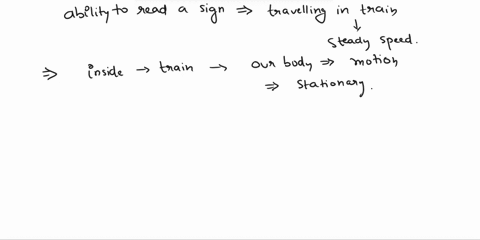 ability to read a sign ⇒ travelling in train
↓
steady speed.
⇒ inside → train → our body ⇒ motion
⇒ stationary.